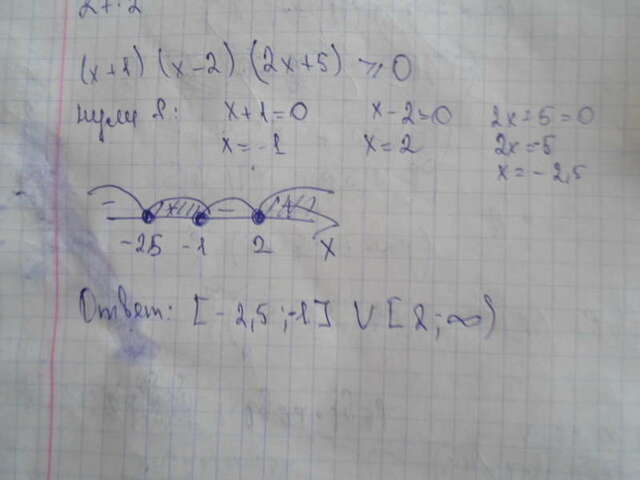 (x+1) (x-2) (2x+5) ⩾ 0
нули f: x+1=0 x-2=0 2x+5=0
x=-1 x=2 2x=-5
x=-2,5
- + - +
-2,5 -1 2 x
Ответ: [-2,5;-1] ∪ [2;∞)